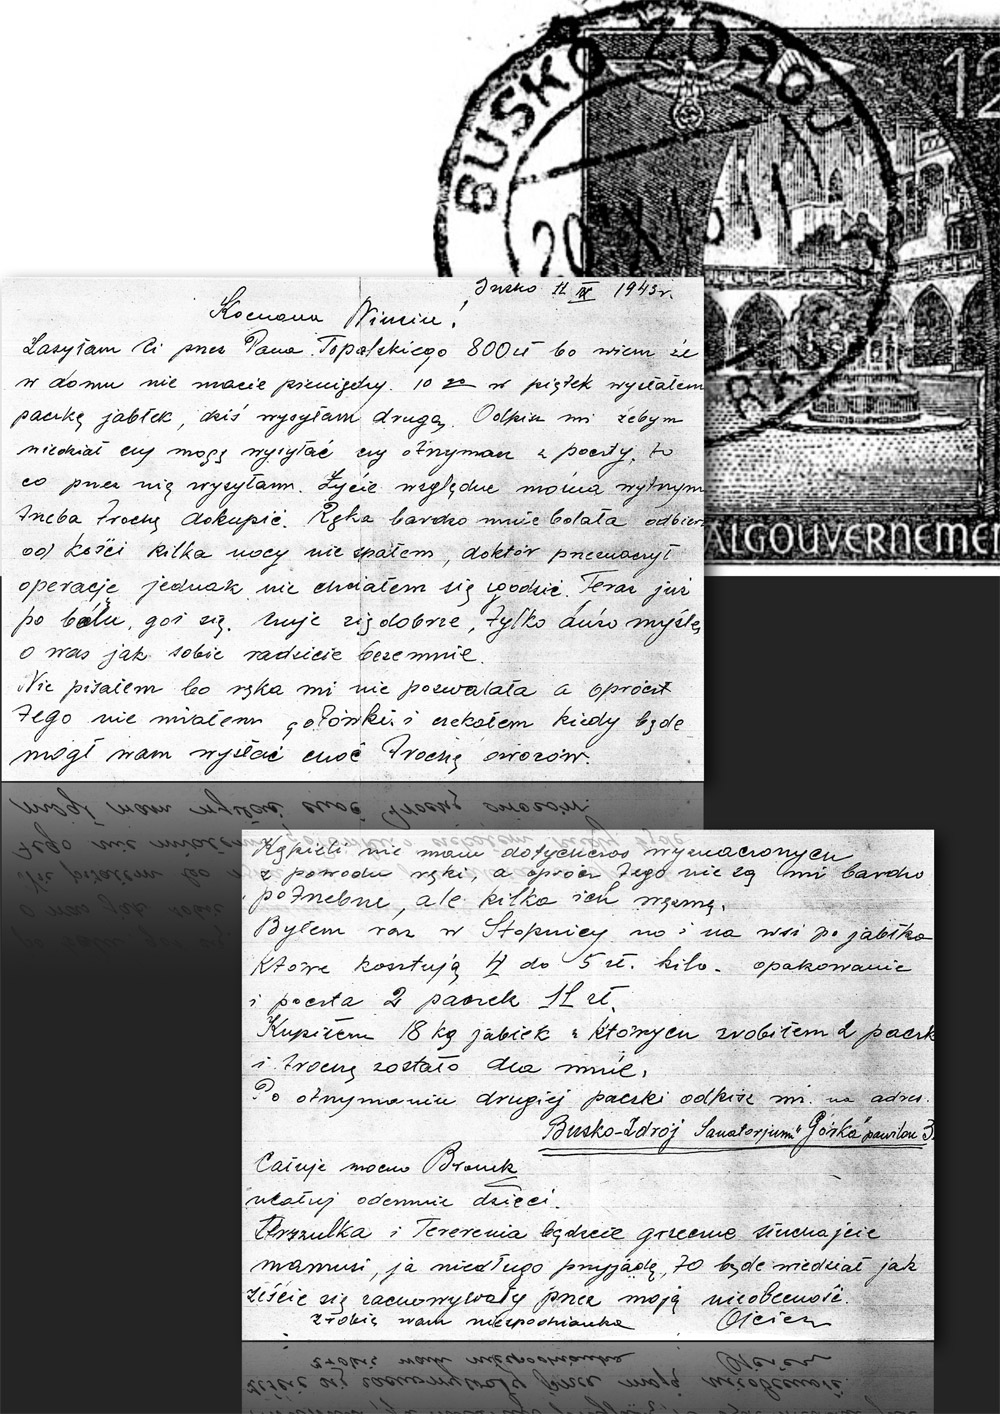 BUSKO ZDRÓJ
12
20
ALGOUVERNEMEN
Busko 11 IX 1943r.
Kochana Niusiu!
Zasyłam Ci przez Pana Topolskiego 800 zł bo wiem że
w domu nie macie pieniędzy. 10 go w piątek wysłałem
paczkę jabłek, dziś wysyłam drugą. Odpisz mi żebym
wiedział czy mogę wysyłać czy otrzymasz z poczty, to
co przez nią wysyłam. Życie względne można wytrzym
trzeba trochę dokupić. Ręka bardzo mnie bolała odbier
od kości kilka nocy nie spałem, doktór przeznaczył
operację jednak nie chciałem się zgodzić. Teraz już
po bólu, goi się. Czuje się dobrze, tylko dużo myślę
o was jak sobie radzicie bezemnie.
Nie pisałem bo ręka mi nie pozwalała a oprócz
tego nie miałem gotówki i czekałem kiedy będe
mógł wam wysłać choć trochę owoców.
Kąpieli nie mam dotychczas wyznaczonych
z powodu ręki, a oprócz tego nie są mi bardzo
potrzebne, ale kilka ich wezmę.
Byłem raz w Stopnicy no i na wsi po jabłka
które kosztują 4 do 5 zł. kilo. opakowanie
i poczta 2 paczek 11 zł.
Kupiłem 18 kg jabłek z których zrobiłem 2 paczk
i trochę zostało dla mnie.
Po otrzymaniu drugiej paczki odpisz mi na adres.
Busko-Zdrój Sanatorjum "Górka" pawilon 3.
Całuje mocno Bronek
ucałuj odemnie dzieci.
Urszulka i Terenia będzcie grzeczne słuchajcie
mamusi, ja niedługo przyjadę, to będe wiedział jak
żeście się zachowywały przez moją nieobecność.
zrobię wam niespodzianke Ojciec